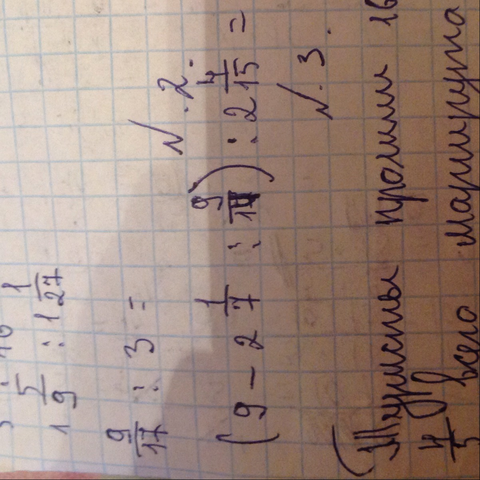 1 5/9 : 1 1/27
9/17 : 3 =
№ 2.
(9 - 2 1/7 : 9/14) : 2 4/15 =
№ 3.
Туристы прошли 16
4/5 всего маршрута